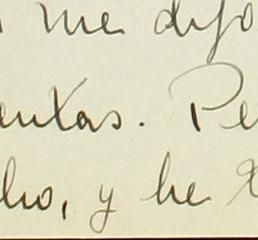 me dijo
entas. Pe
ho, y he